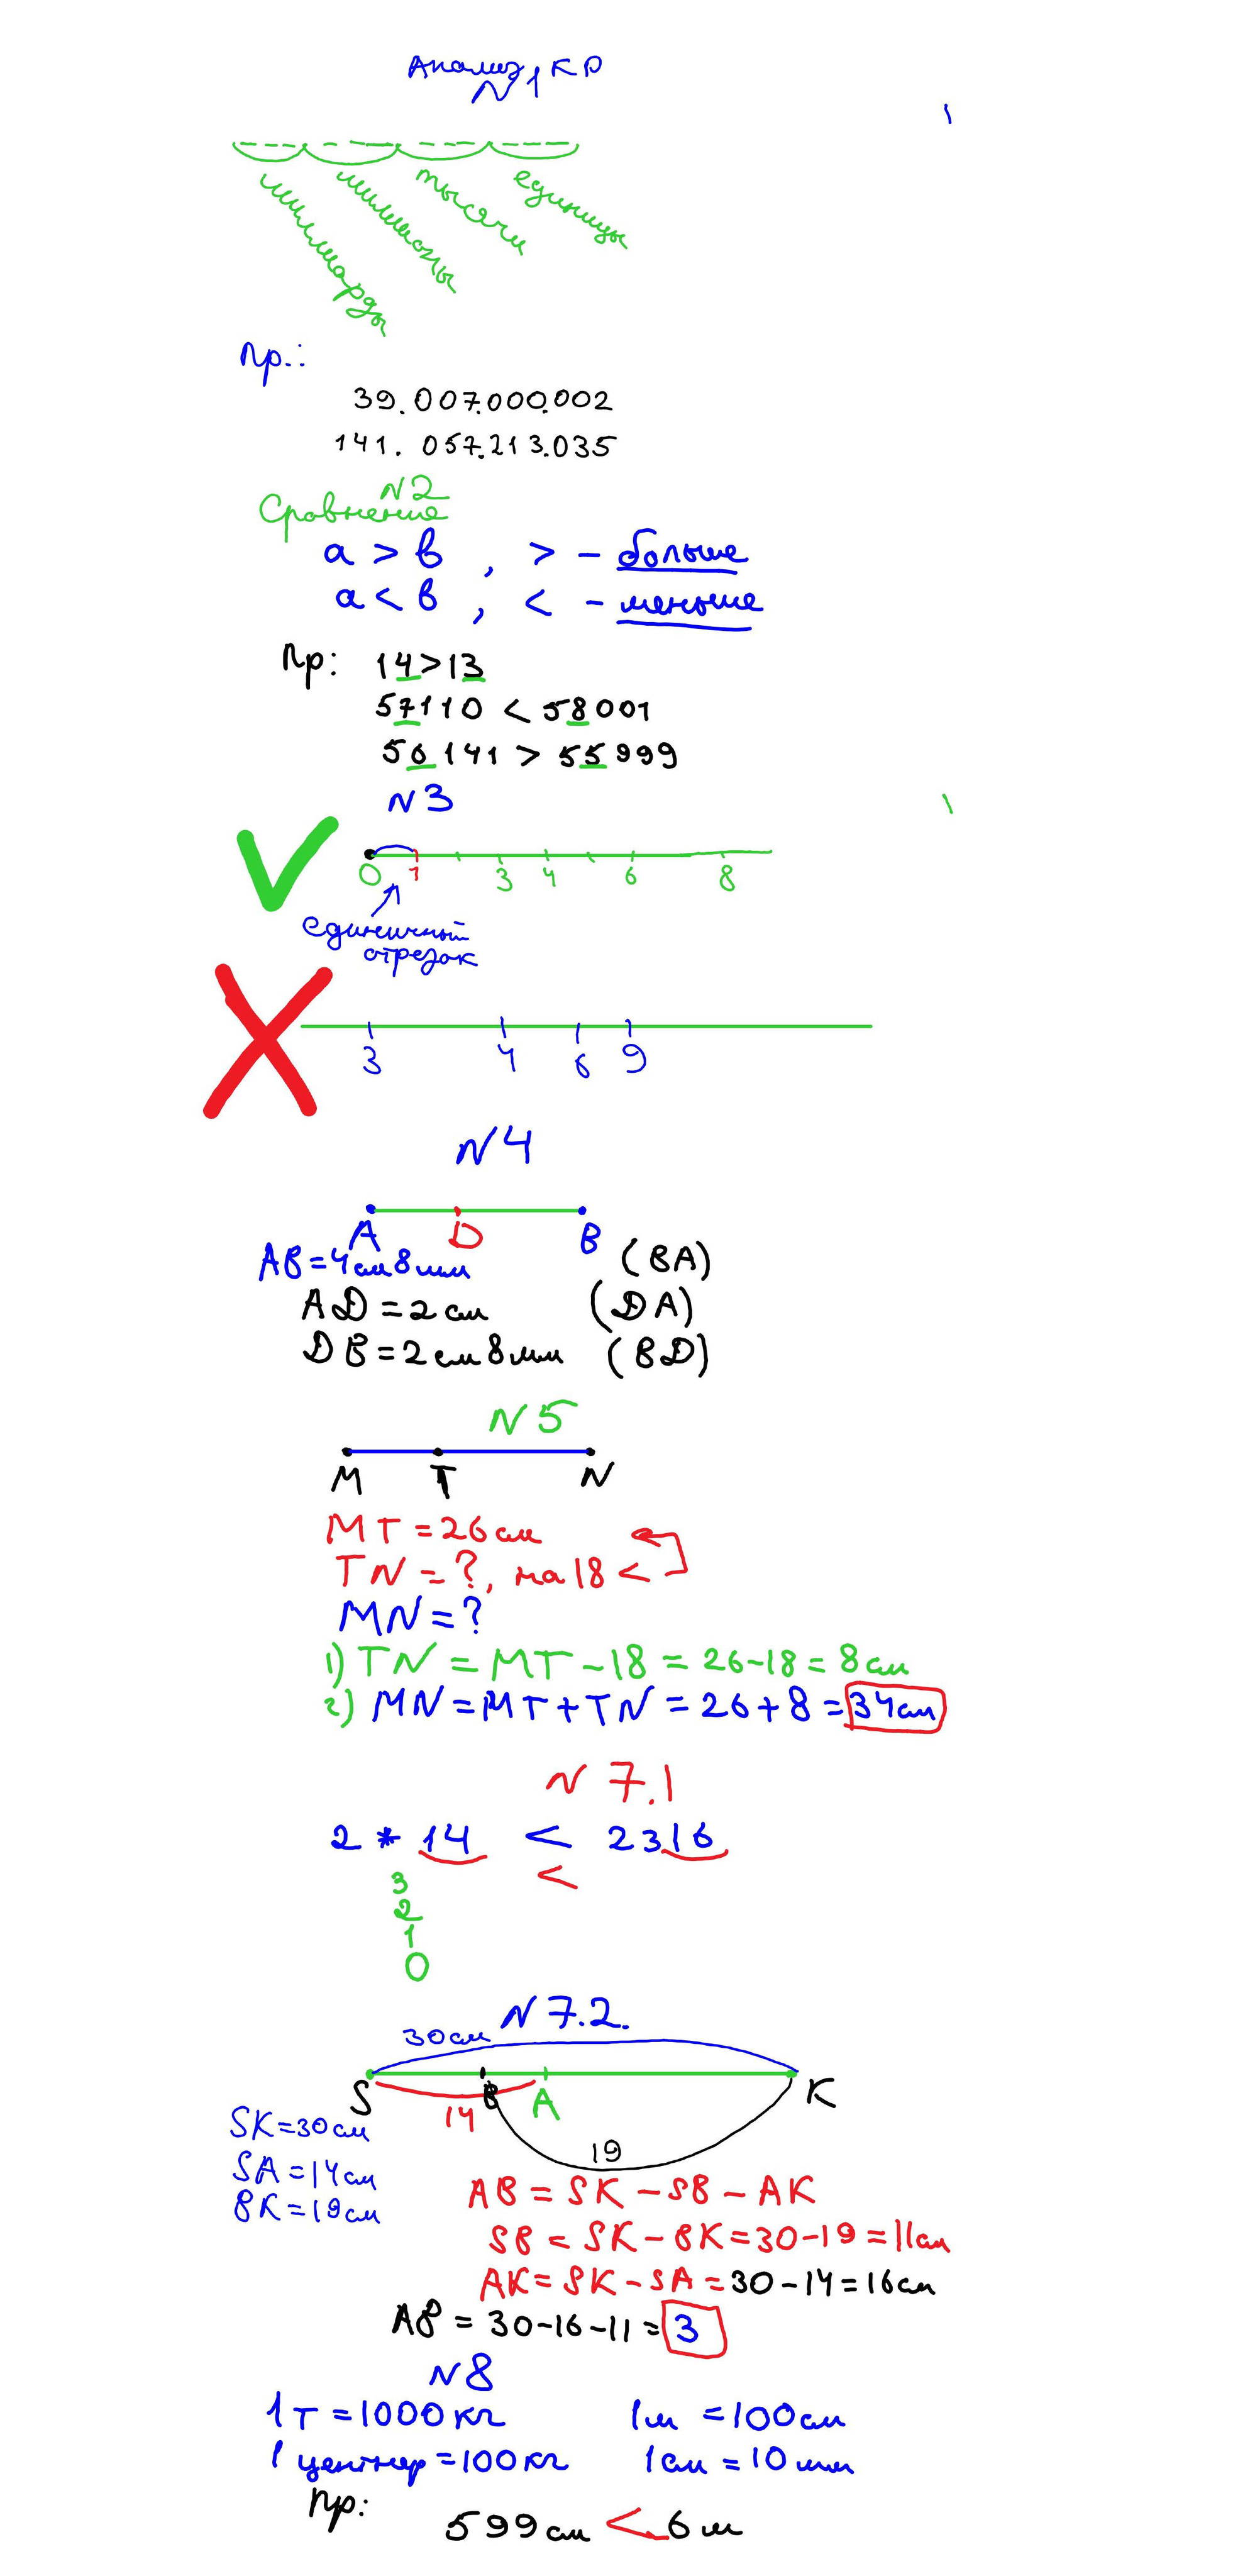 Анализ КР
N1
миллиарды миллионы тысячи единицы
Пр.:
39.007.000.002
141.057.213.035
N2
Сравнение
a > b , > - больше
a < b , < - меньше
Пр: 14>13
57110 < 58001
56141 > 55999
N3
0 1 3 4 6 8
единичный
отрезок
3 4 6 9
N4
A D B
AB=4см8мм (BA)
AD=2см (DA)
DB=2см8мм (BD)
N5
M T N
MT=26см
TN=?, на18<
MN=?
1) TN=MT-18=26-18=8см
2) MN=MT+TN=26+8=34см
N 7.1
2 * 14 < 2316
<
3
2
1
0
N 7.2.
30см
S B A K
14
19
SK=30см
SA=14см
BK=19см
AB=SK-SB-AK
SB=SK-BK=30-19=11см
AK=SK-SA=30-14=16см
AB=30-16-11=3
N8
1т=1000кг 1м=100см
1 центнер=100кг 1см=10мм
Пр:
599см < 6м